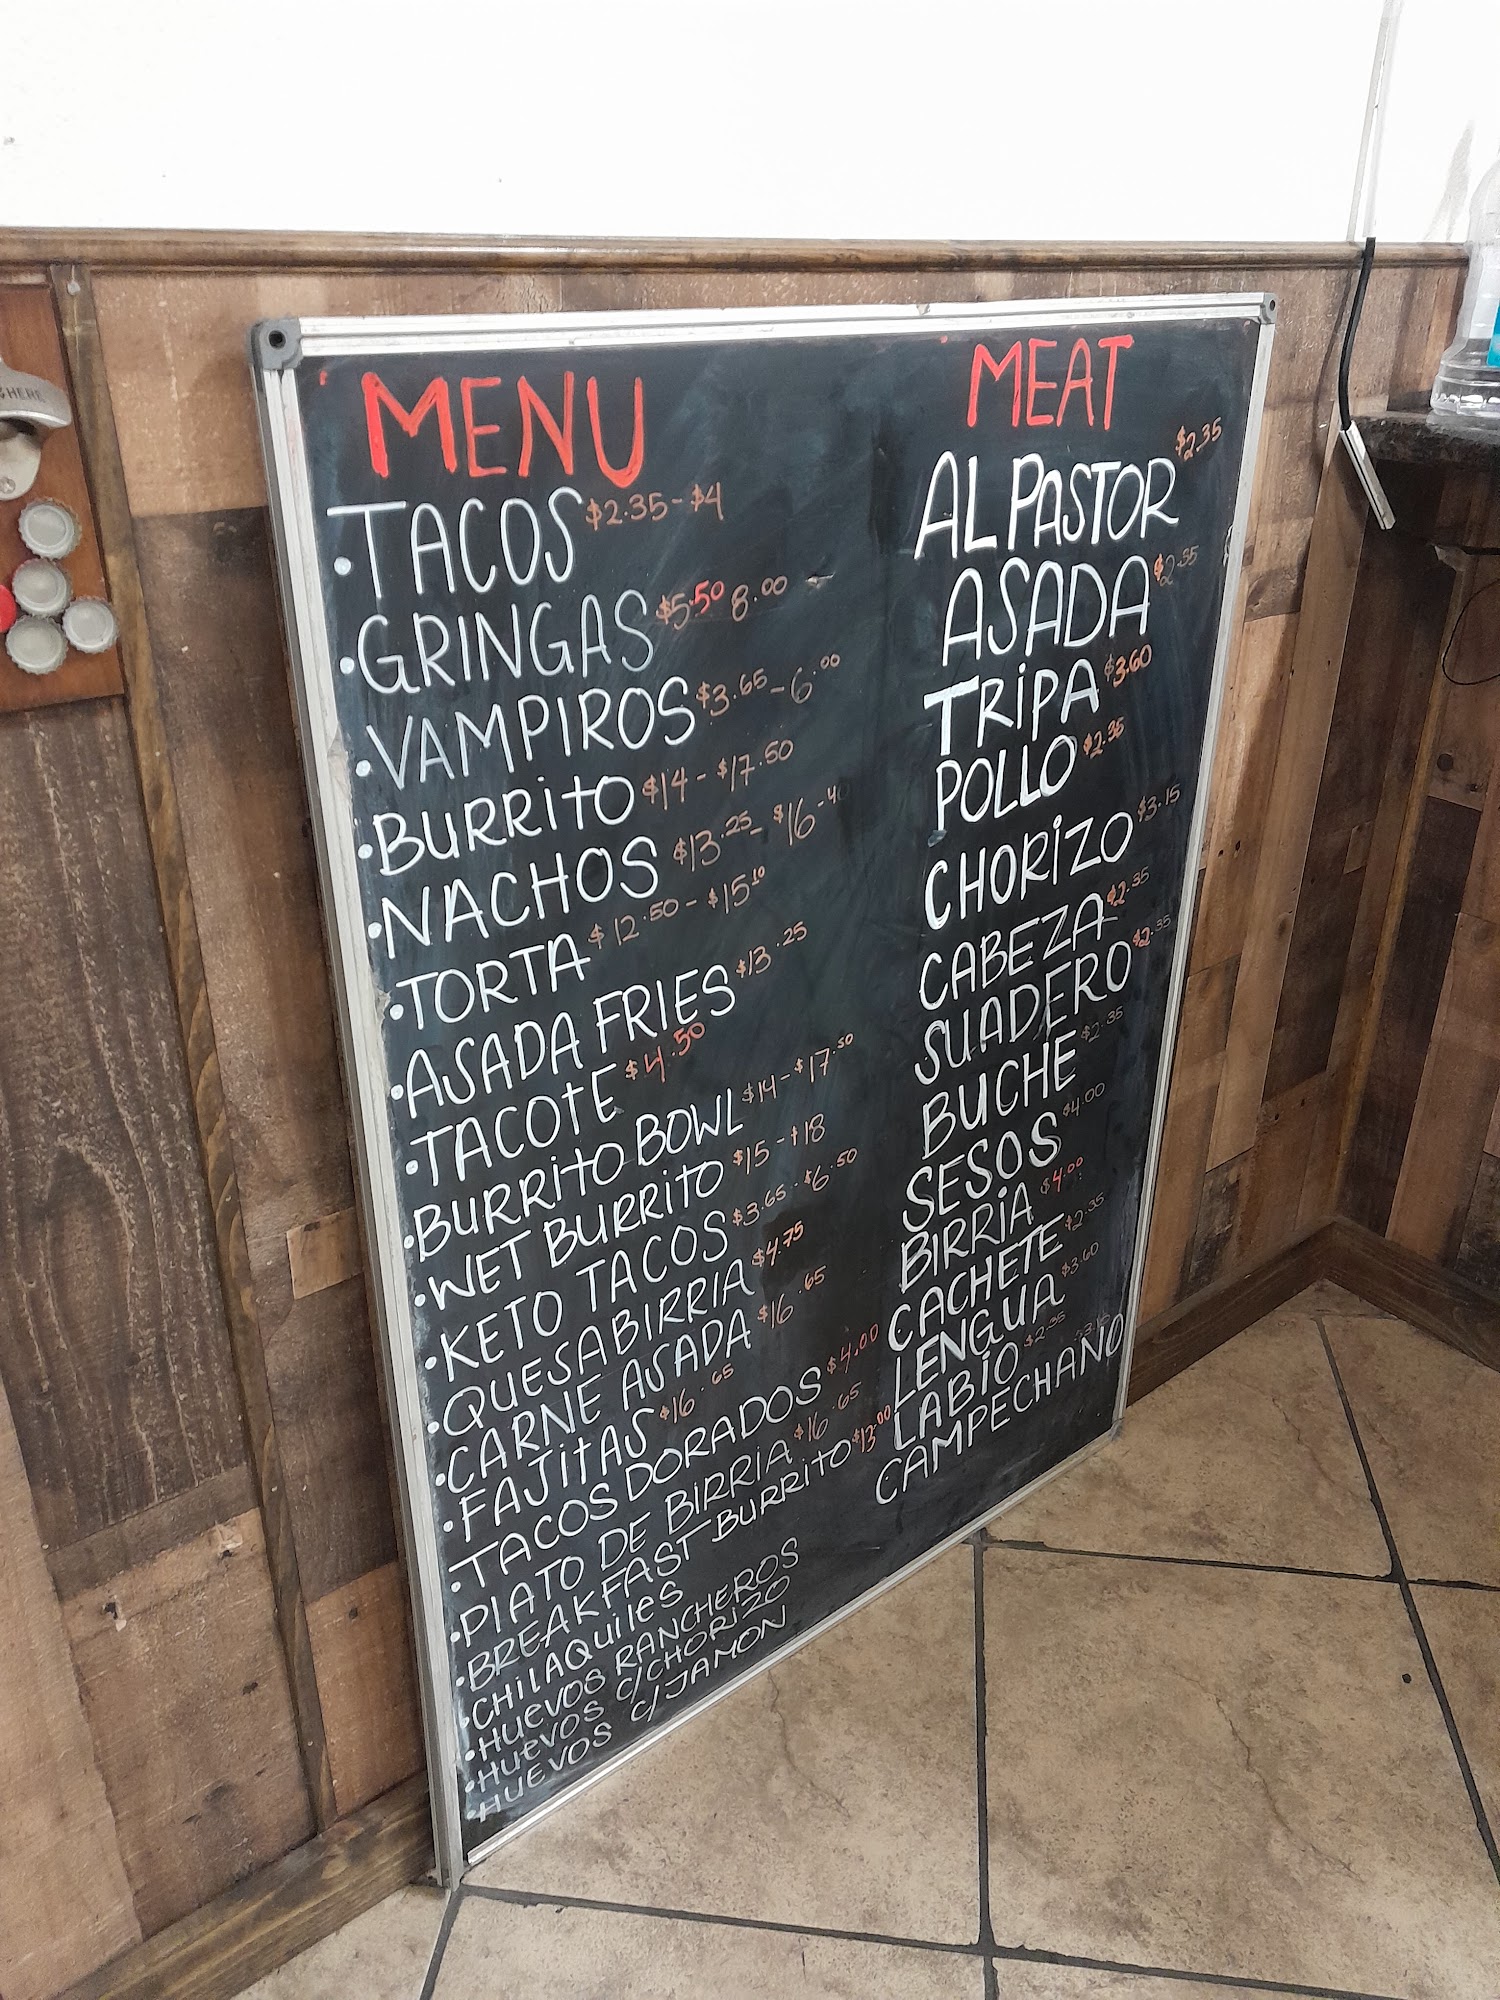 HERE
MENU
• TACOS $2.35 - $4
• GRINGAS $5.50 8.00
• VAMPIROS $3.65 - 6.00
• BURRITO $14 - $17.50
• NACHOS $13.25 - $16.40
• TORTA $12.50 - $15.10
• ASADA FRIES $13.25
• TACOTE $4.50
• BURRITO BOWL $14 - $17.50
• WET BURRITO $15 - $18
• KETO TACOS $3.65 - $6.50
• QUESABIRRIA $4.75
• CARNE ASADA $16.65
• FAJITAS $16.65
• TACOS DORADOS $4.00
• PLATO DE BIRRIA $16.65
• BREAKFAST BURRITO $13.00
• CHILAQUILES
• HUEVOS RANCHEROS
• HUEVOS C/CHORIZO
• HUEVOS C/JAMON
MEAT
AL PASTOR $2.35
ASADA $2.35
TRIPA $3.60
POLLO $2.35
CHORIZO $3.15
CABEZA $2.35
SUADERO $2.35
BUCHE $2.35
SESOS $4.00
BIRRIA $4.00
CACHETE $2.35
LENGUA $3.60
LABIO $2.35
CAMPECHANO